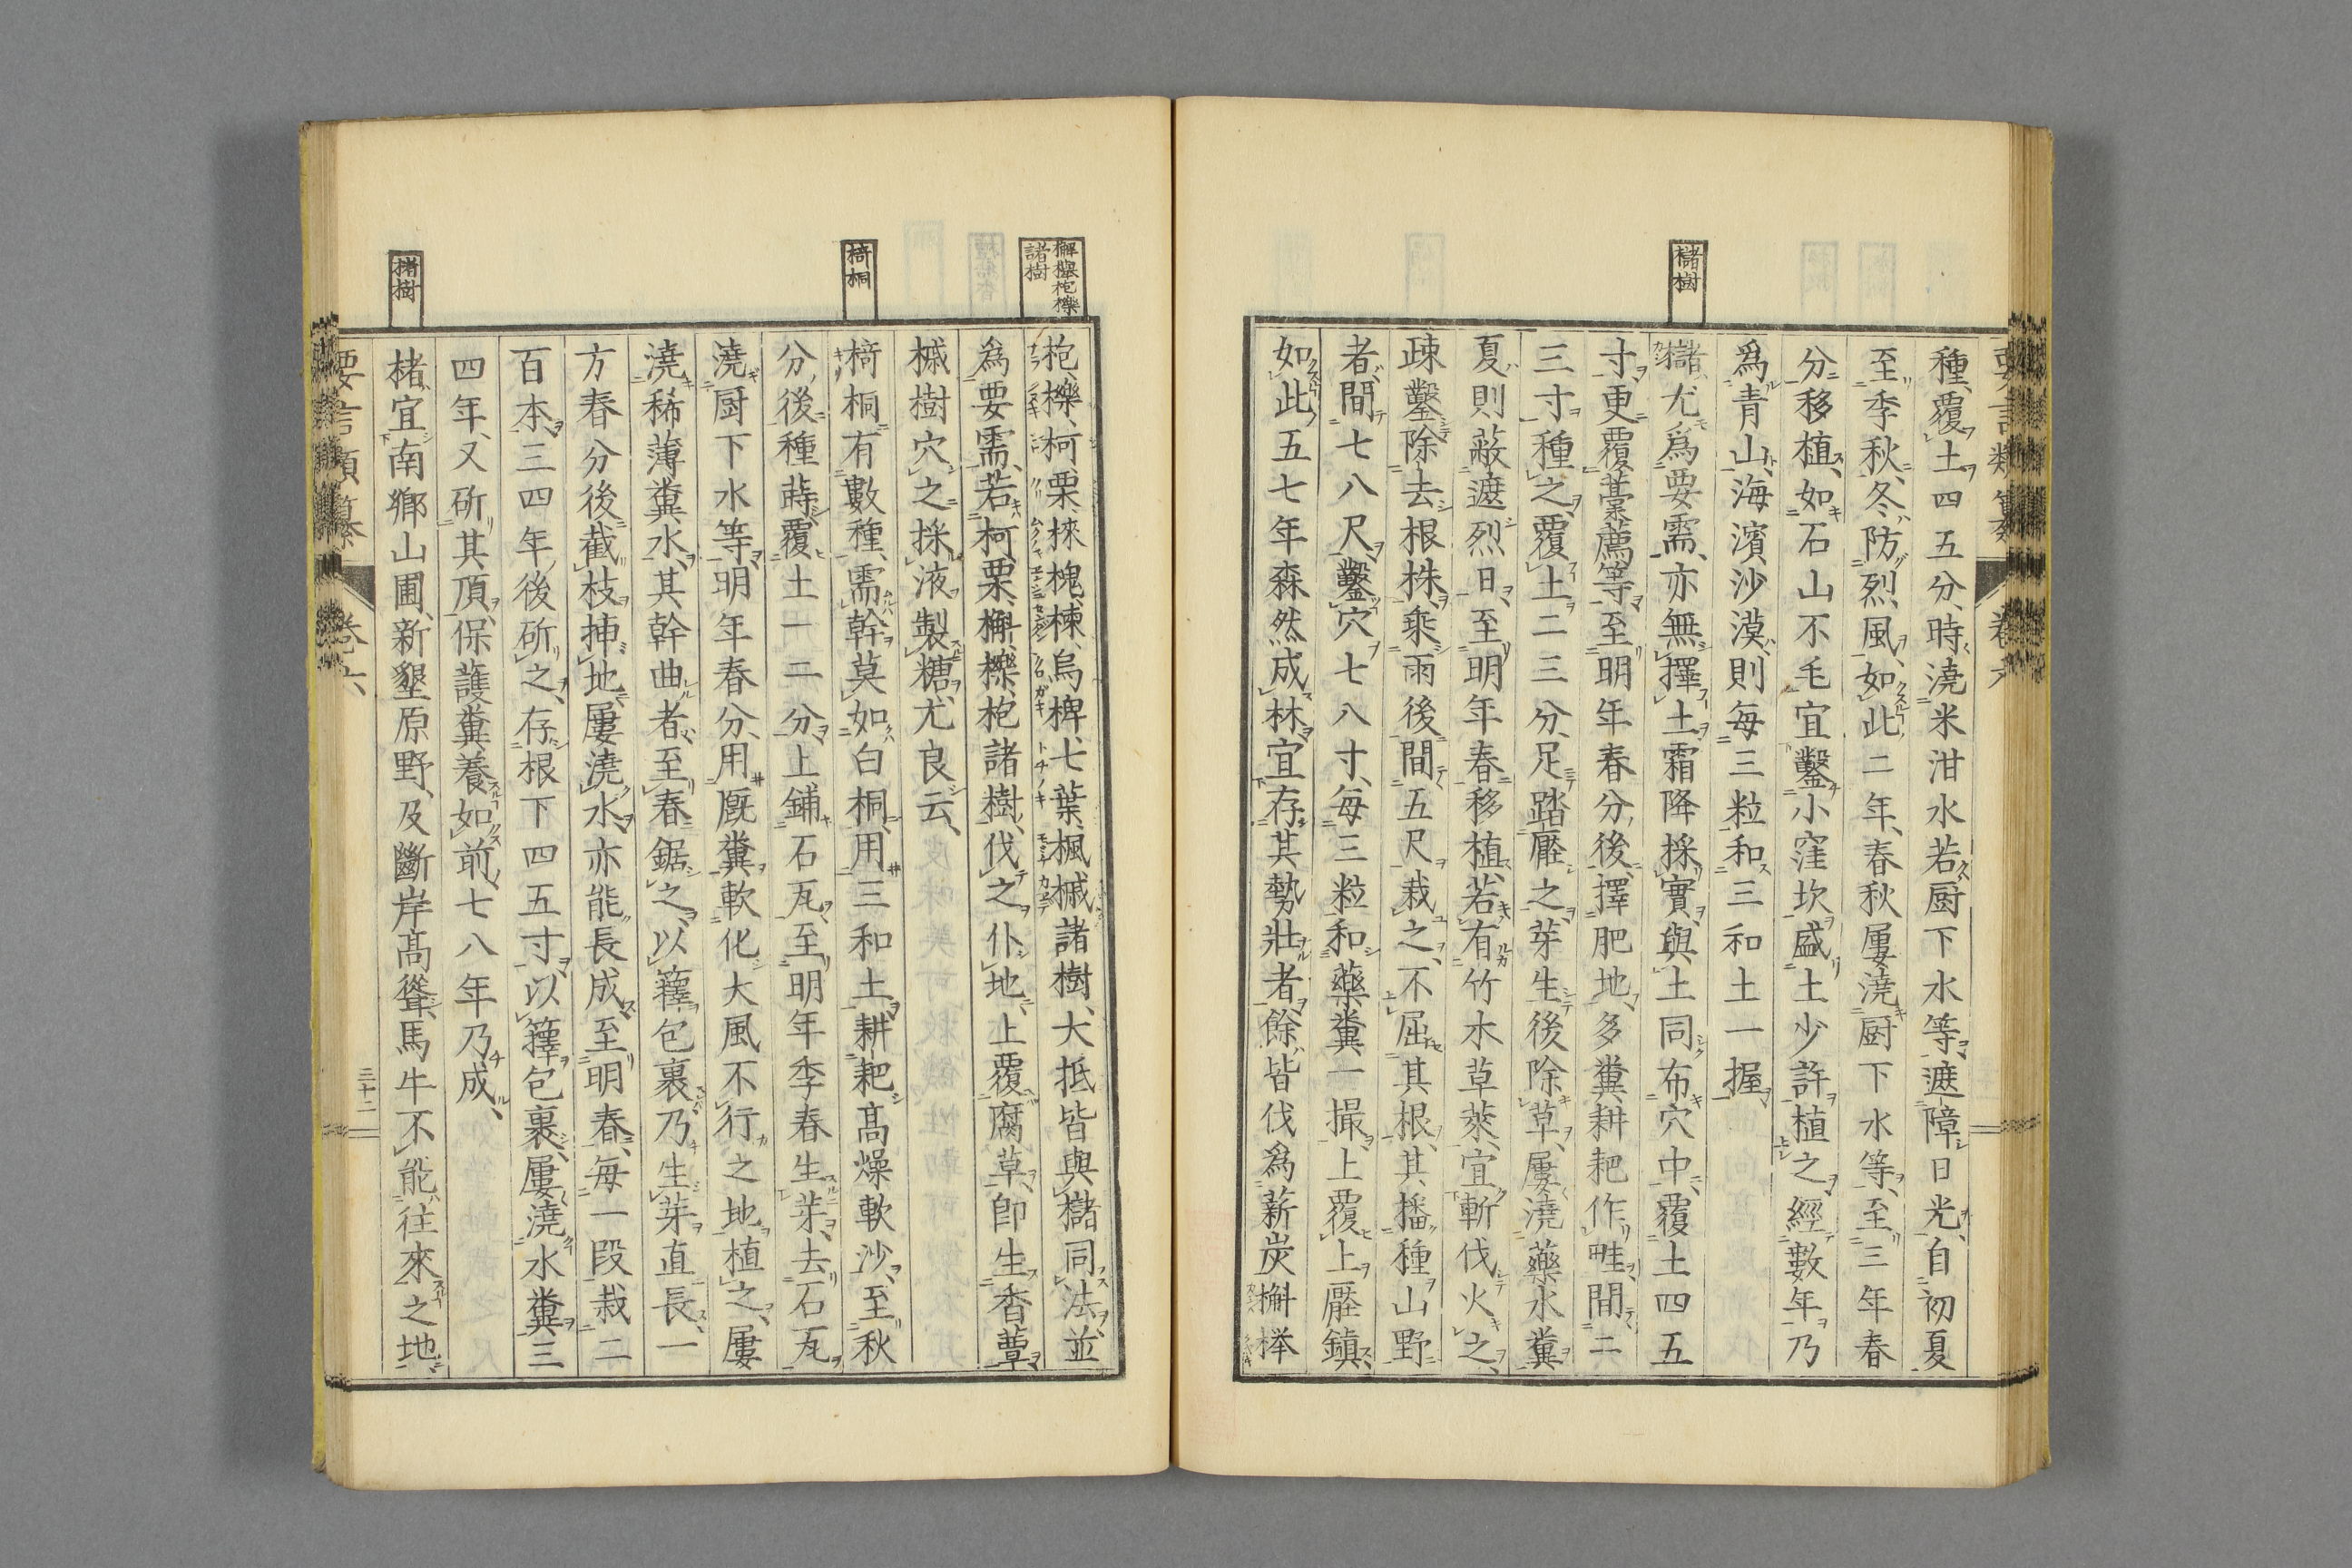 種覆土四五分、時澆米泔水若厨下水等遮障日光、自初夏
至季秋、冬防烈風、如此二年、春秋屢澆厨下水等、至三年春
分移植、如石山不毛宜鑿小窪坎盛土少許植之經數年乃
爲青山、海濱沙漠則每三粒和三和土一握
櫧樹
櫧尤爲要需、亦無擇土霜降採實、與土同布穴中、覆土四五
寸、更覆藁薦等、至明年春分後、擇肥地、多糞耕耙作畦、間二
三寸種之、覆土二三分、足踏壓之、芽生後除草、屢澆藥水糞
夏則蔽遮烈日、至明年春移植、若有竹木草萊、宜斬伐火之、
疎鑿除去根株、乘雨後間五尺栽之、不屈其根、其播種山野
者、間七八尺、鑿穴七八寸、每三粒和藥糞一撮、上覆土壓鎮、
如此五七年森然成林、宜存其勢壯者、餘皆伐爲薪炭槲欅
諸樹
枹、櫟、柯栗、槐、楝、烏椑、七葉、楓、槭諸樹、大抵皆與櫧同法、並
爲要需、若柯栗、槲、櫟、枹諸樹、伐之仆地、上覆腐草、卽生香蕈
槭樹穴之採液製糖、尤良云、
椅桐
椅桐有數種、需幹莫如白桐、用三和土、耕耙高燥軟沙、至秋
分後種蒔覆土一二分、上鋪石瓦、至明年季春生芽、去石瓦
澆厨下水等、明年春分、用厩糞軟化大風不行之地植之、屢
澆稀薄糞水、其幹曲者、至春鋸之、以籜包裹乃生芽直長、一
方春分後截枝挿地屢澆水亦能長成至明春、每一段栽二
百本、三四年後斫之、存根下四五寸、以籜包裹、屢澆水糞、三
四年、又斫其頂、保護糞養如前、七八年乃成、
楮樹
楮宜南鄉山圃、新墾原野、及斷岸高聳馬牛不能往來之地
卷六
三十二